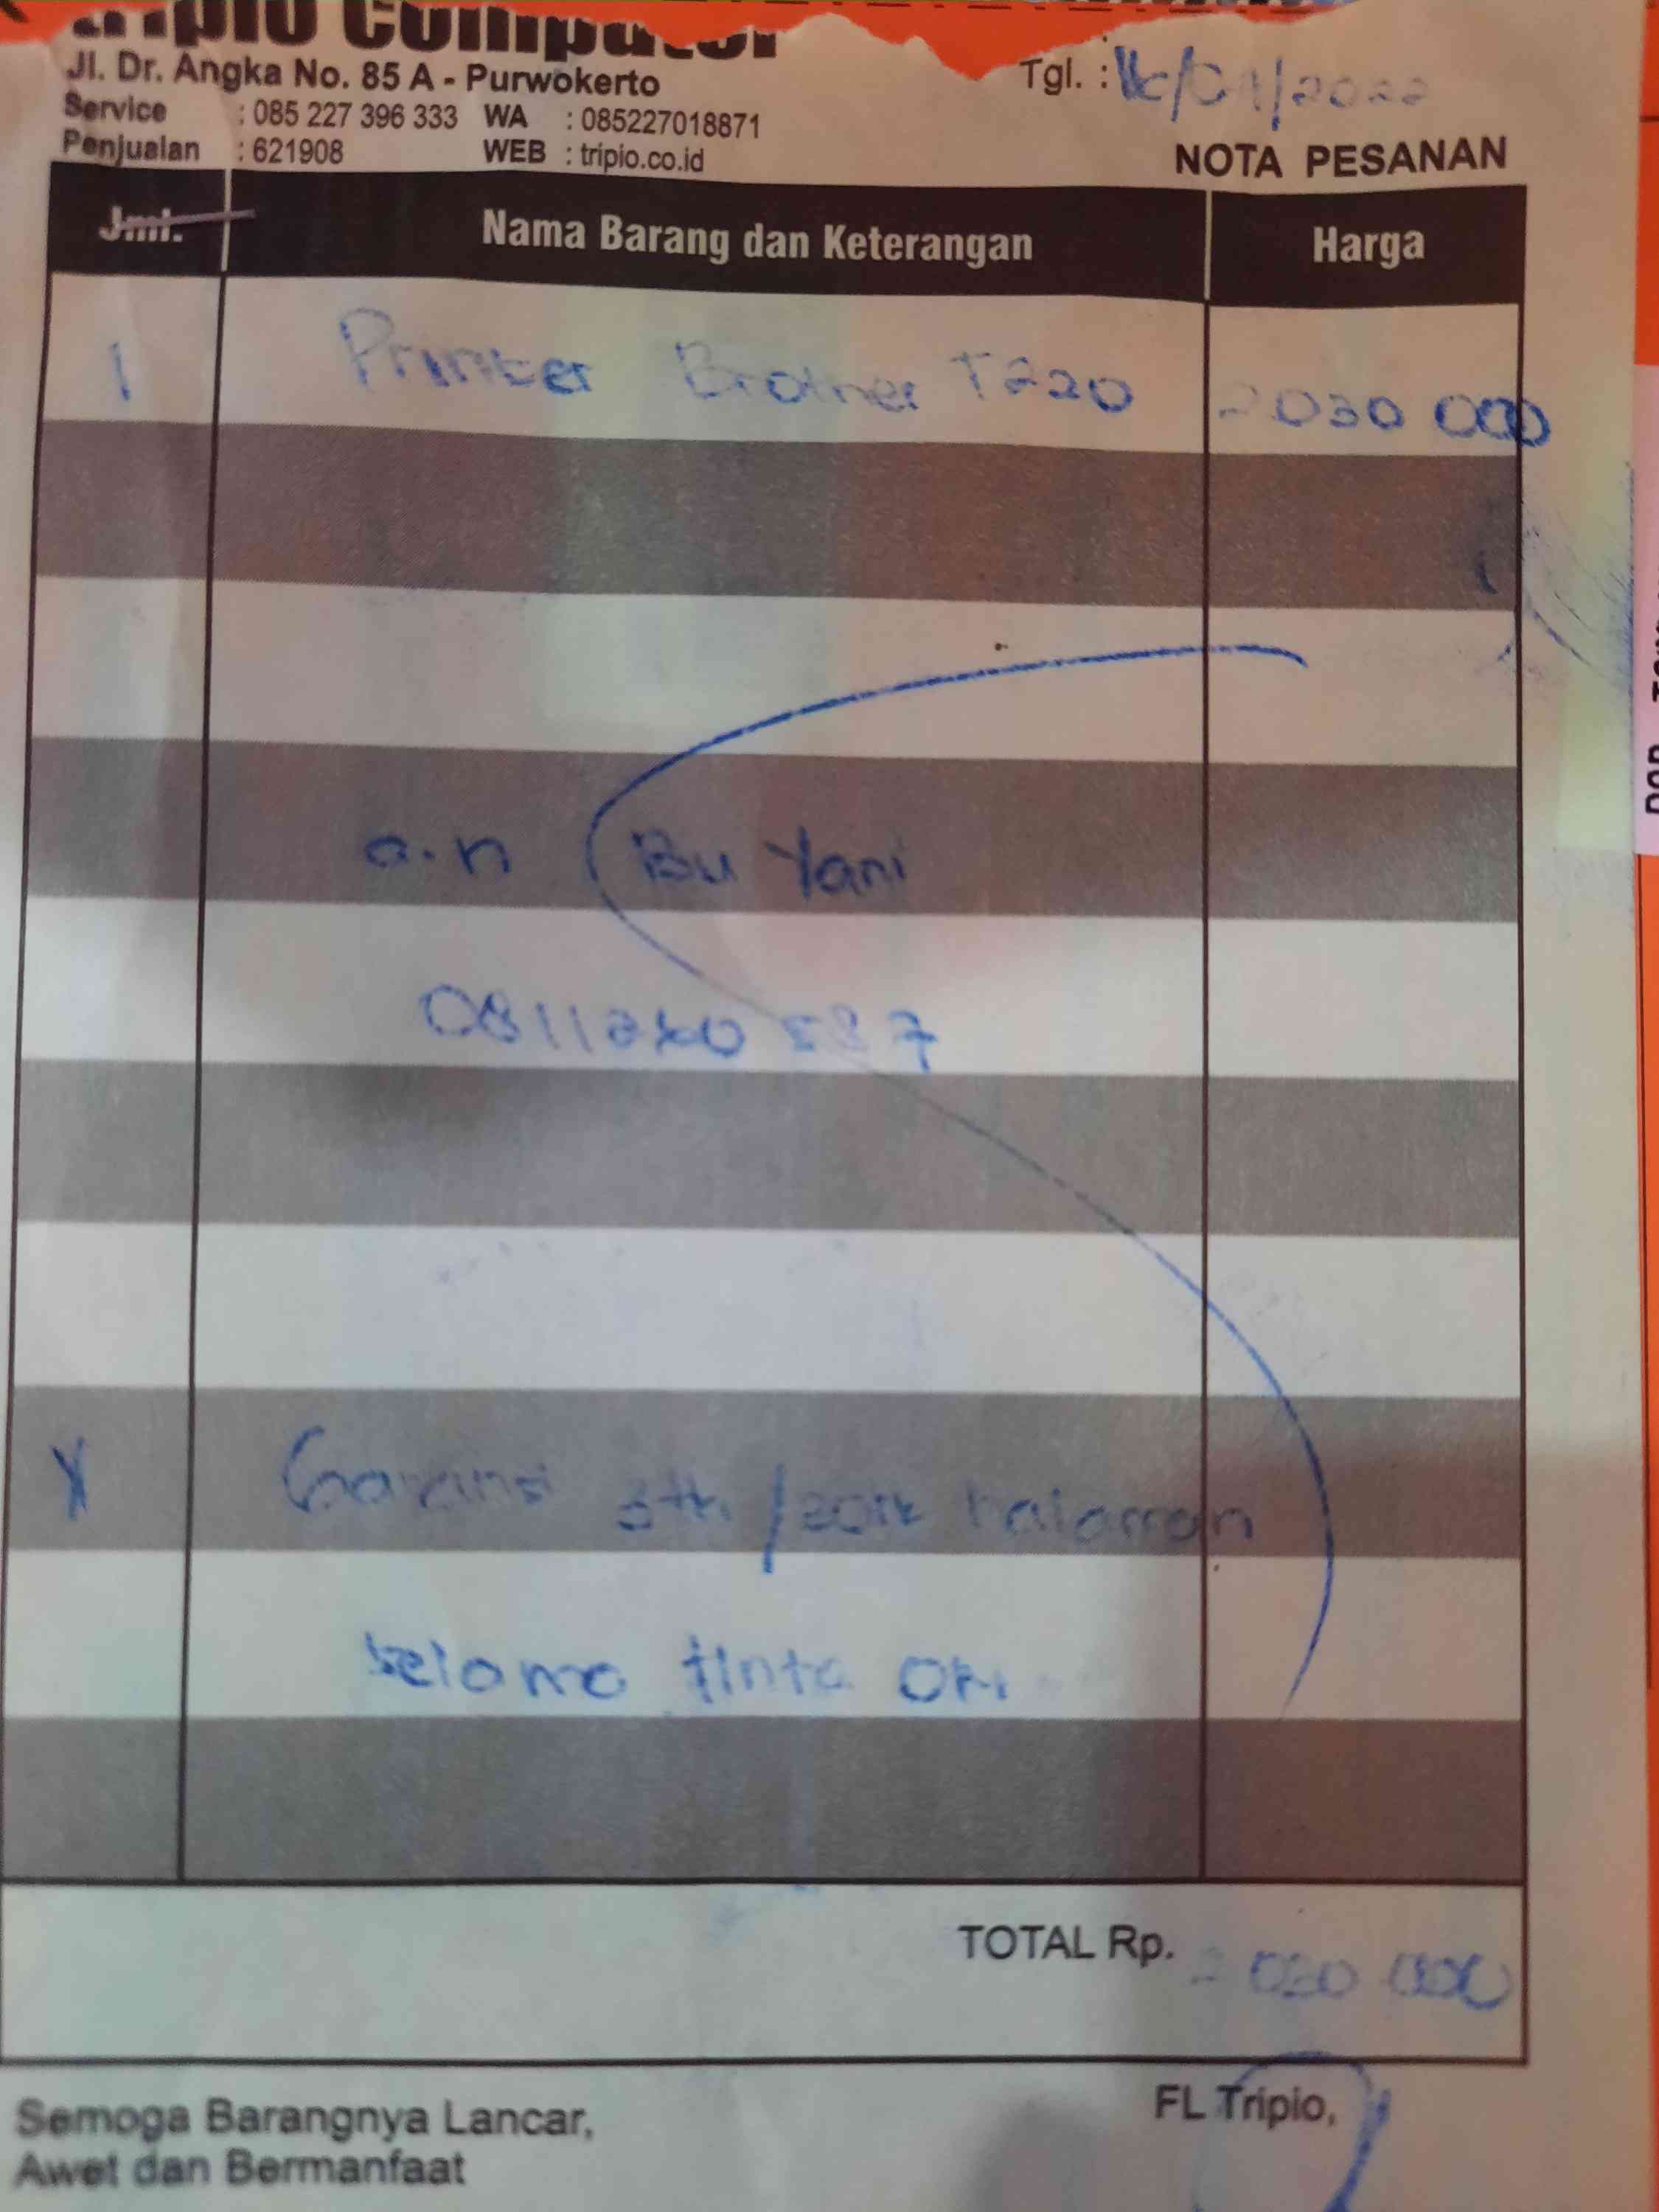 tripio computer
Jl. Dr. Angka No. 85 A - Purwokerto
Service : 085 227 396 333 WA : 085227018871
Penjualan : 621908 WEB : tripio.co.id
Tgl. : /01/2022
NOTA PESANAN
Jml. Nama Barang dan Keterangan Harga
1 Printer Brother T220 2030 000
a.n Bu Yani
Garansi 3th / 30rb halaman
selama tinta ori
TOTAL Rp. 2 030 000
Semoga Barangnya Lancar,
Awet dan Bermanfaat
FL Tripio,